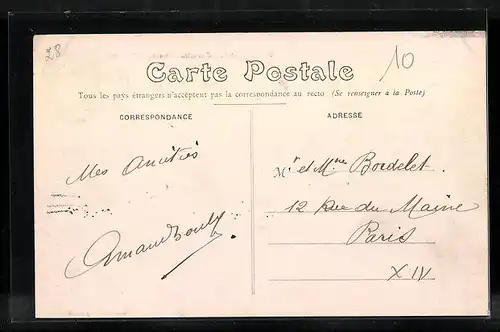 28
10
Carte Postale
Tous les pays étrangers n'acceptent pas la correspondance au recto (Se renseigner à la Poste)
CORRESPONDANCE
ADRESSE
Mes Amitiés
Mr et Mme Bordelet.
12 Rue du Maine
Paris
XIV